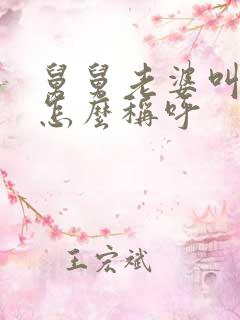 舅舅老婆叫
怎麼稱呼
王宏斌